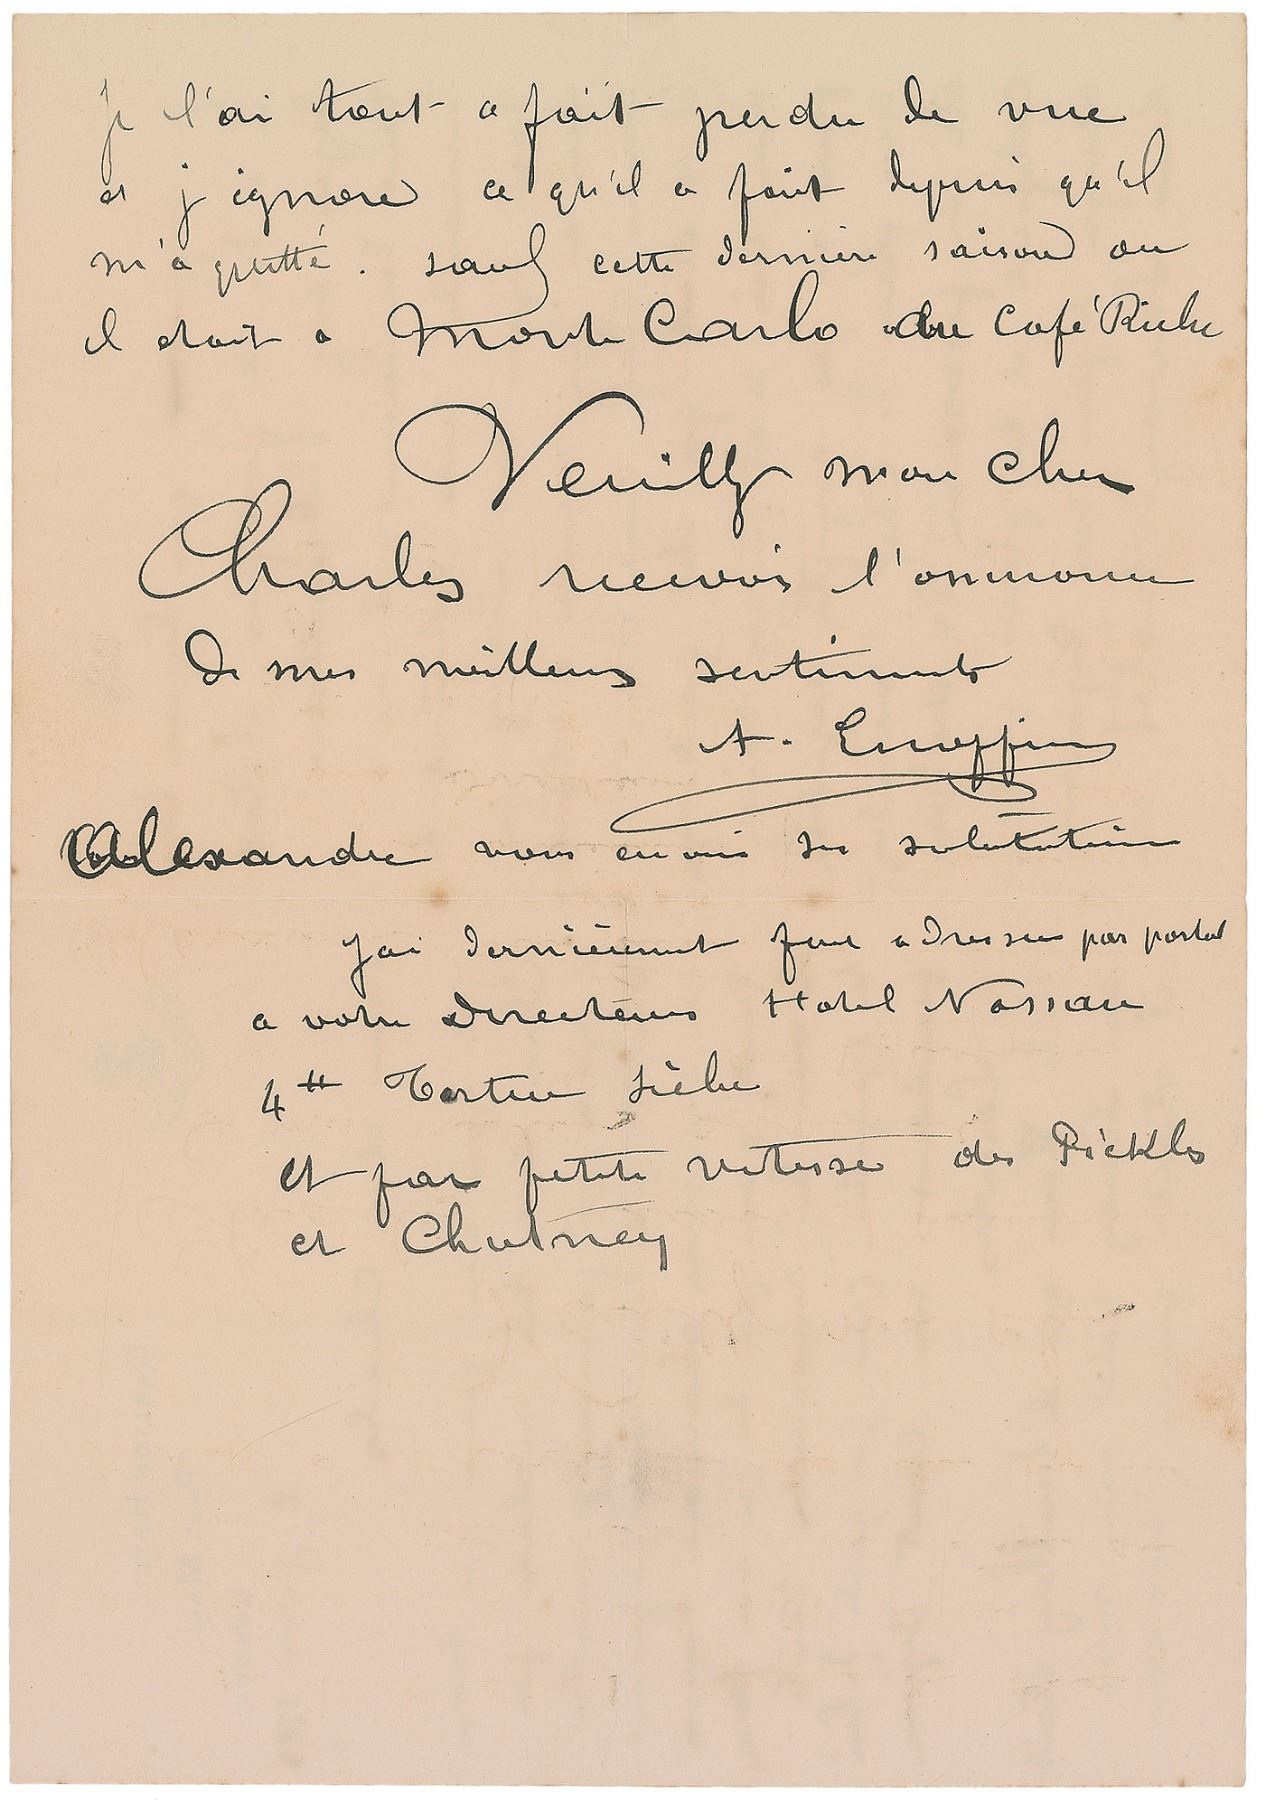 Je l'ai tout a fait perdu de vue
et j ignore ce qu'il a fait depuis qu'il
m'a quitté. sauf cette dernière saison ou
il etait a Monte Carlo au Café Riche
Veuillez mon cher
Charles recevoir l'assurance
de mes meilleurs sentiments
A. Escoffier
Alexandre vous envoie ses salutations
J'ai dernièrement fait adresser par postal
a votre Directeur Hotel Nassau
4 Tortue sèche
et par petite vitesse des Pickles
et Chutney